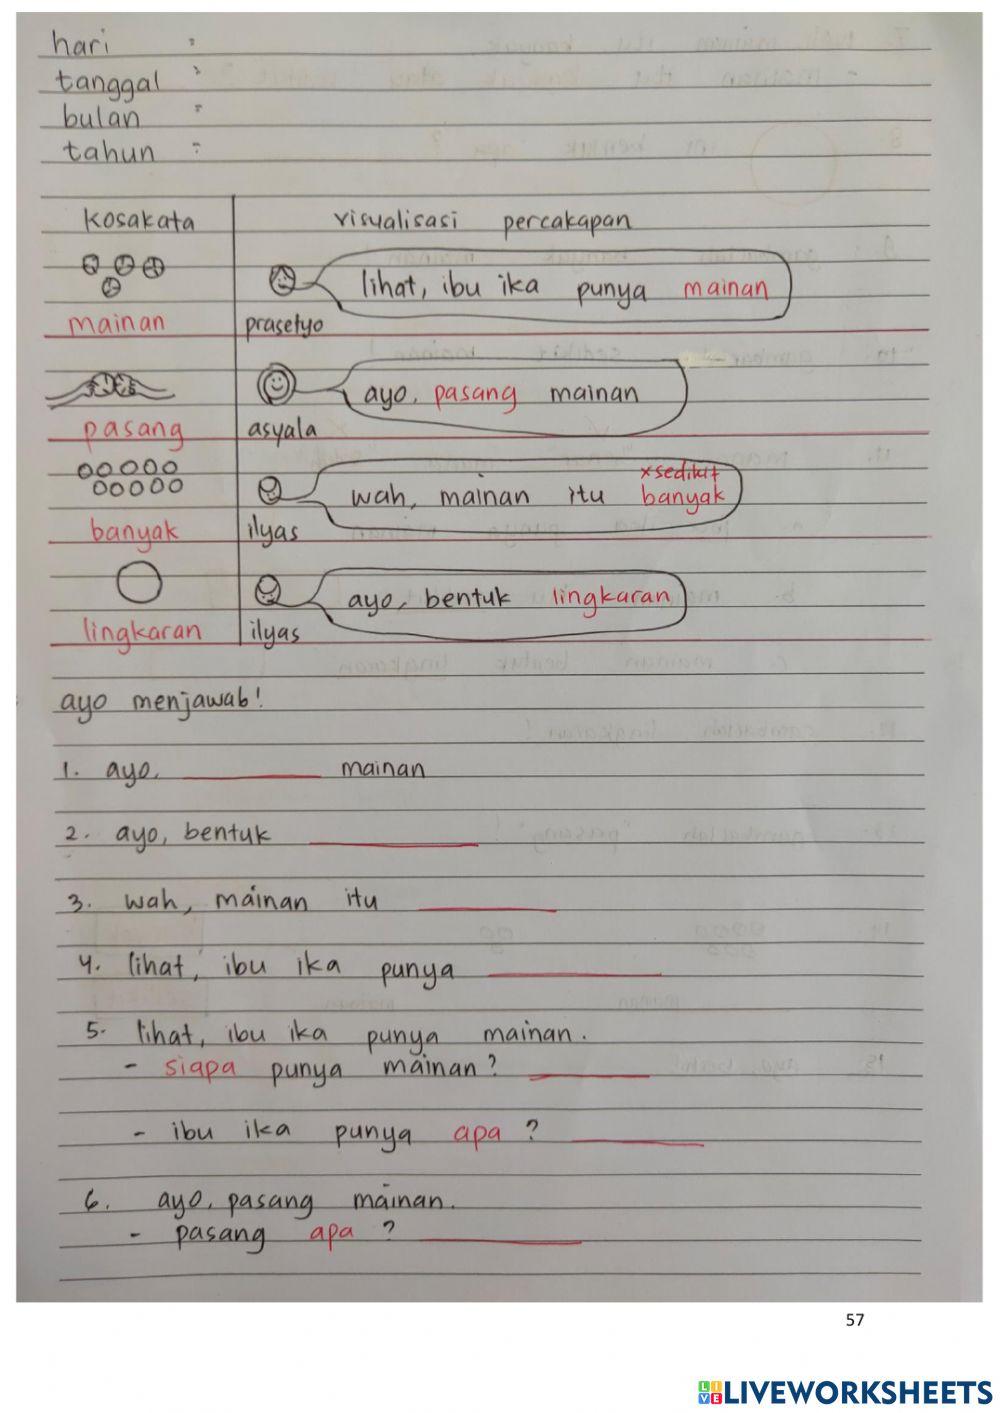 hari :
tanggal :
bulan :
tahun :
kosakata visualisasi percakapan
lihat, ibu ika punya mainan
mainan prasetyo
ayo, pasang mainan
pasang asyala
xsedikit
wah, mainan itu banyak
banyak ilyas
ayo, bentuk lingkaran
lingkaran ilyas
ayo menjawab!
1. ayo, ________ mainan
2. ayo, bentuk ________
3. wah, mainan itu ________
4. lihat, ibu ika punya ________
5. lihat, ibu ika punya mainan.
- siapa punya mainan? ________
- ibu ika punya apa ? ________
6. ayo, pasang mainan.
- pasang apa ? ________
57
LIVE LIVEWORKSHEETS